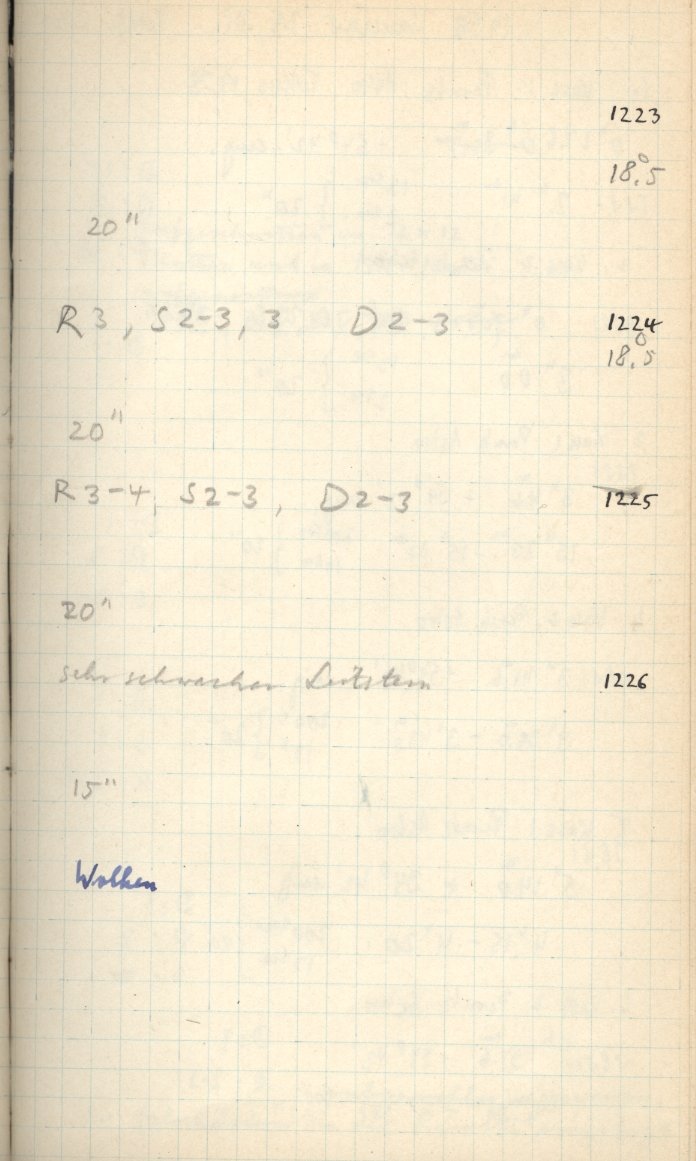 1223
18.°5
20"
R 3, S 2-3, 3 D 2-3 1224
18.°5
20"
R 3-4, S 2-3, D 2-3 1225
20"
sehr schwacher Leitstern 1226
15"
Wolken